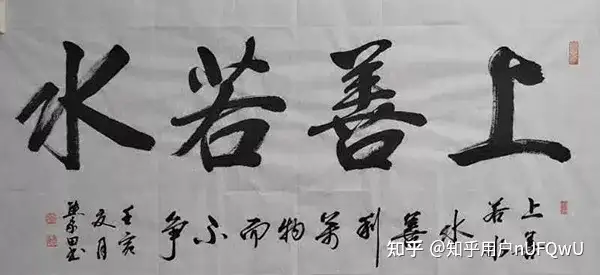 上善若水
上善
若水
水善利萬物而不争
壬寅
夏月
知乎 @知乎用户nUFQwU